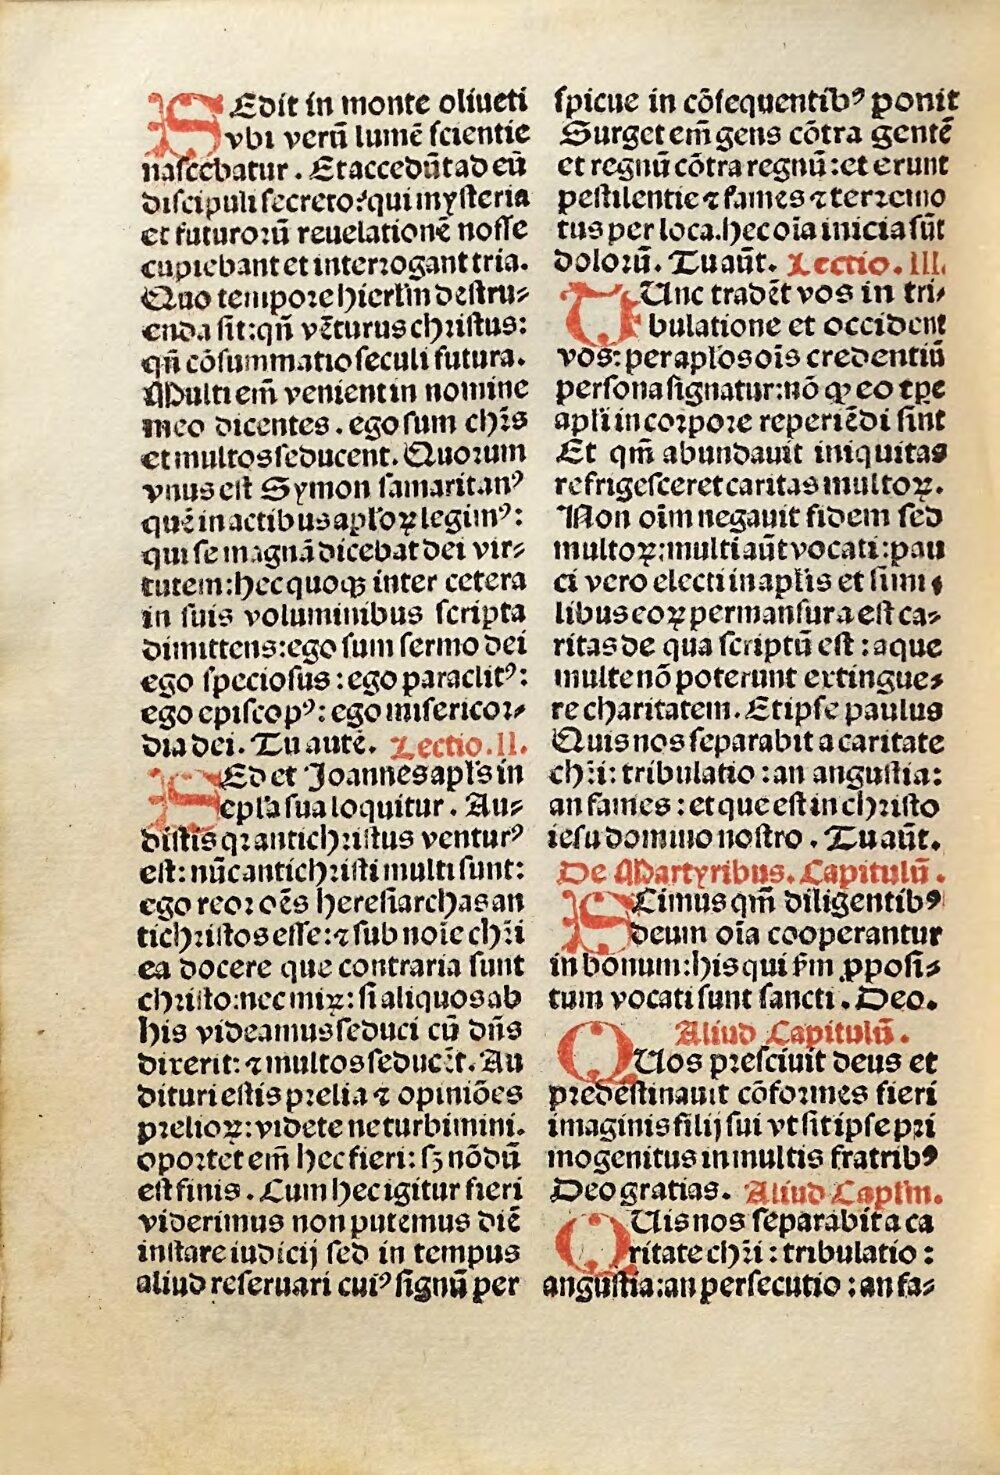 SEdit in monte oliueti
vbi verū lumē scientie
nascebatur. Et accedūt ad eū
discipuli secreto: qui mysteria
et futuroꝝ reuelationē nosse
cupiebant et interrogant tria.
Quo tempore hierlm̄ destru-
enda sit: qn̄ vēturus christus:
qn̄ cōsummatio seculi futura.
Multi em̄ venient in nomine
meo dicentes. ego sum chr̄s
et multos seducent. Quorum
vnus est Symon samaritanꝰ
quē in actibus apl'oꝝ legimꝰ:
qui se magnā dicebat dei vir-
tutem: hec quoqꝫ inter cetera
in suis voluminibus scripta
dimittens: ego sum sermo dei
ego speciosus: ego paraclitꝰ:
ego episcopꝰ: ego misericor-
dia dei. Tu autē. Lectio. II.
SEd et Joannes apl's in
epl'a sua loquitur. Au-
distis qꝛ antichristus venturꝰ
est: nūc antichristi multi sunt:
ego reor oēs heresiarchas an
tichristos esse: ⁊ sub noīe chr̄i
ea docere que contraria sunt
christo: nec miꝝ: si aliquos ab
his videamus seduci cū dn̄s
dixerit: ⁊ multos seducēt. Au
dituri estis prelia ⁊ opiniōes
prelioꝝ: videte ne turbimini.
oportet em̄ hec fieri: sꝫ nōdū
est finis. Cum hec igitur fieri
viderimus non putemus diē
instare iudicij sed in tempus
aliud reseruari cuiꝰ signū per
spicue in cōsequentibꝰ ponit
Surget em̄ gens cōtra gentē
et regnū cōtra regnū: et erunt
pestilentie ⁊ fames ⁊ terremo
tus per loca. hec oīa inicia sūt
dolorū. Tu aūt. Lectio. III.
TUnc tradēt vos in tri-
bulatione et occident
vos: per apl'os oīs credentiū
persona signatur: nō ꝙ eo tꝑe
apl'i in corpore reperiēdi sint
Et qm̄ abundauit iniquitas
refrigesceret caritas multoꝝ.
Non oīm negauit fidem sed
multoꝝ: multi aūt vocati: pau
ci vero electi in apl'is et simi-
libus eoꝝ permansura est ca-
ritas de qua scriptū est: aque
multe nō poterunt extingue-
re charitatem. Et ipse paulus
Quis nos separabit a caritate
chr̄i: tribulatio: an angustia:
an fames: et que est in christo
iesu domino nostro. Tu aūt.
De Martyribus. Capitulū.
SCimus qm̄ diligentibꝰ
deum oīa cooperantur
in bonum: his qui s'm ꝓposi-
tum vocati sunt sancti. Deo.
Aliud Capitulū.
QUos presciuit deus et
predestinauit cōformes fieri
imaginis filij sui vt sit ipse pri
mogenitus in multis fratribꝰ
Deo gratias. Aliud Caplm̄.
QUis nos separabit a ca
ritate chr̄i: tribulatio:
angustia: an persecutio: an fa-